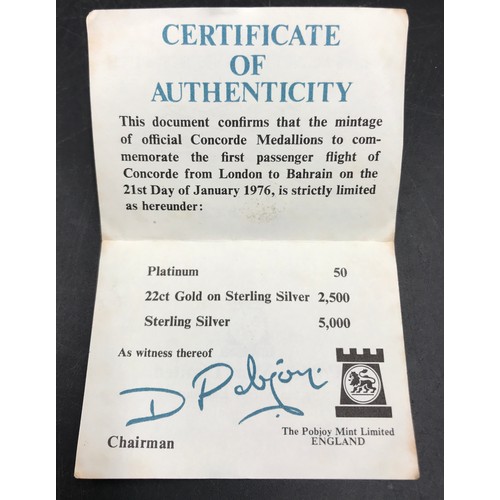 CERTIFICATE
OF
AUTHENTICITY
This document confirms that the mintage
of official Concorde Medallions to com-
memorate the first passenger flight of
Concorde from London to Bahrain on the
21st Day of January 1976, is strictly limited
as hereunder:
Platinum 50
22ct Gold on Sterling Silver 2,500
Sterling Silver 5,000
As witness thereof
D Pobjoy.
Chairman
The Pobjoy Mint Limited
ENGLAND